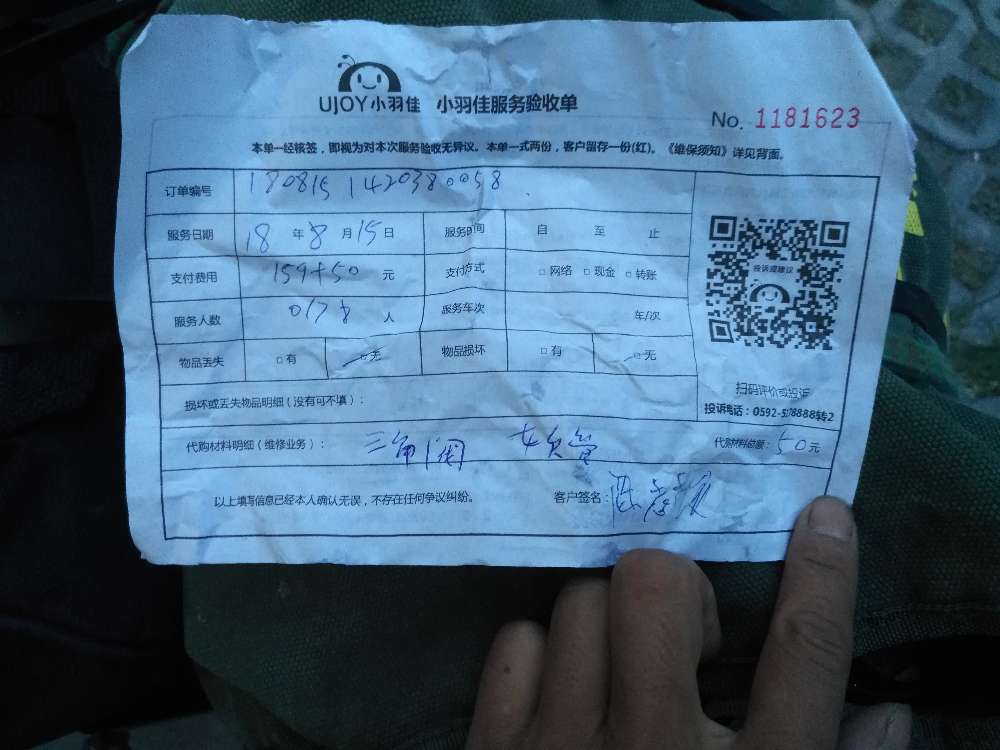 UJOY小羽佳 小羽佳服务验收单
No. 1181623
本单一经核签，即视为对本次服务验收无异议。本单一式两份，客户留存一份(红)。《维保须知》详见背面。
订单编号 180815 1420380058
服务日期 18 年 8 月 15 日 服务时间 自 至 止
支付费用 159+50 元 支付方式 □网络 □现金 □转账
服务人数 人 服务车次 车/次
物品丢失 □有 □无 物品损坏 □有 □无
投诉或建议
扫码评价或投诉
投诉电话：0592-5 8888转2
损坏或丢失物品明细（没有可不填）：
代购材料明细（维修业务）： 三角阀 代购材料总额： 50 元
以上填写信息已经本人确认无误，不存在任何争议纠纷。 客户签名：